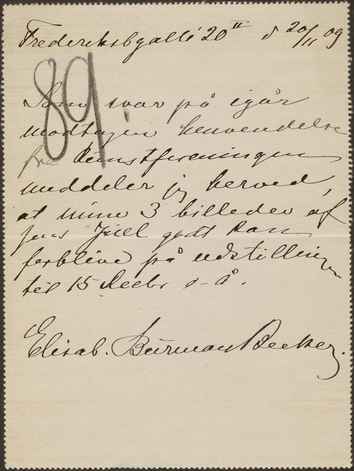 Frederiksbgallé 20 II d 20/11 09
89.
Som svar på igår
modtagen henvendelse
fra Kunstforeningen
meddeler jeg herved,
at mine 3 billeder af
Jens Juel godt kan
forblive på udstillingen
til 15 Decbr d. å.
Elisab. Burman Becker.